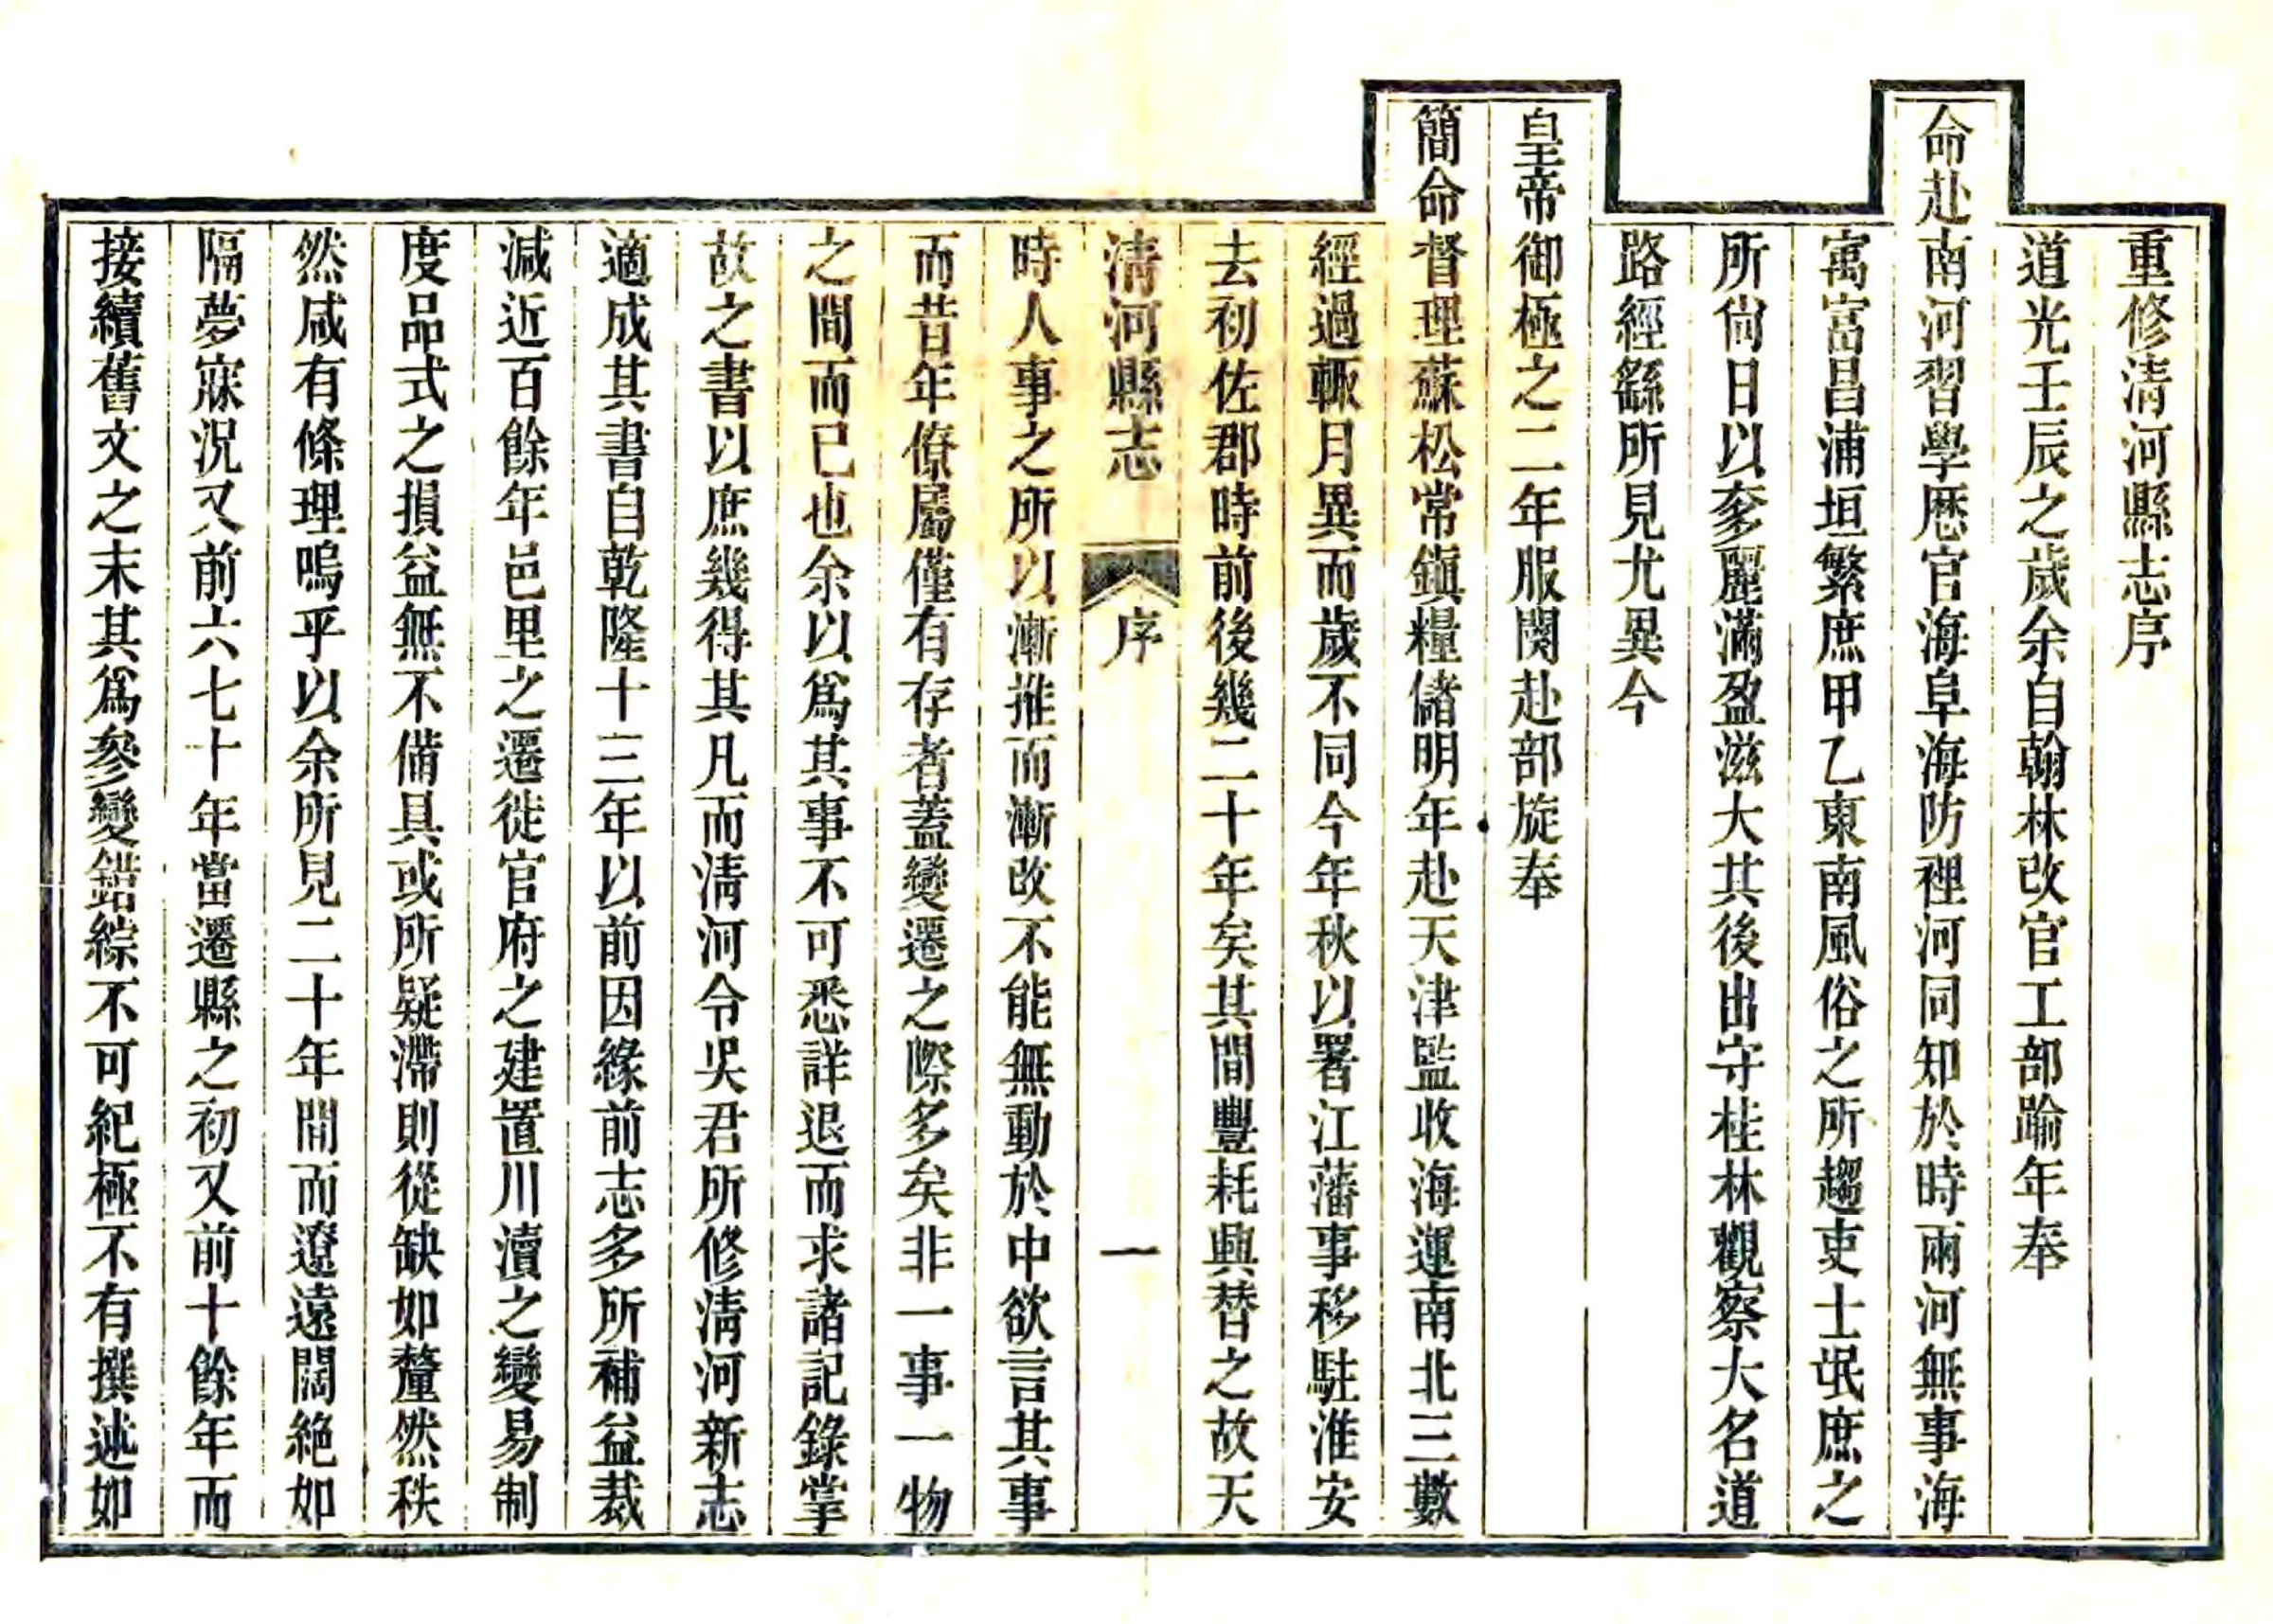 重修清河縣志序
道光壬辰之歲余自翰林改官工部踰年奉
命赴南河習學歷官海阜海防裡河同知於時兩河無事海
寓富昌浦垣繁庶甲乙東南風俗之所趨吏士氓庶之
所尙日以奓麗滿盈滋大其後出守桂林觀察大名道
路經繇所見尤異今
皇帝御極之二年服闋赴部旋奉
簡命督理蘇松常鎭糧儲明年赴天津監收海運南北三數
經過輒月異而歲不同今年秋以署江藩事移駐淮安
去初佐郡時前後幾二十年矣其間豐耗興替之故天
清河縣志 序 一
時人事之所以漸推而漸改不能無動於中欲言其事
而昔年僚屬僅有存者蓋變遷之際多矣非一事一物
之間而已也余以爲其事不可悉詳退而求諸記錄掌
故之書以庶幾得其凡而淸河令吳君所修淸河新志
適成其書自乾隆十三年以前因緣前志多所補益裁
減近百餘年邑里之遷徙官府之建置川瀆之變易制
度品式之損益無不備具或所疑滯則從缺如釐然秩
然咸有條理嗚乎以余所見二十年間而遼遠闊絕如
隔夢寐況又前六七十年當遷縣之初又前十餘年而
接續舊文之末其爲參變錯綜不可紀極不有撰述如